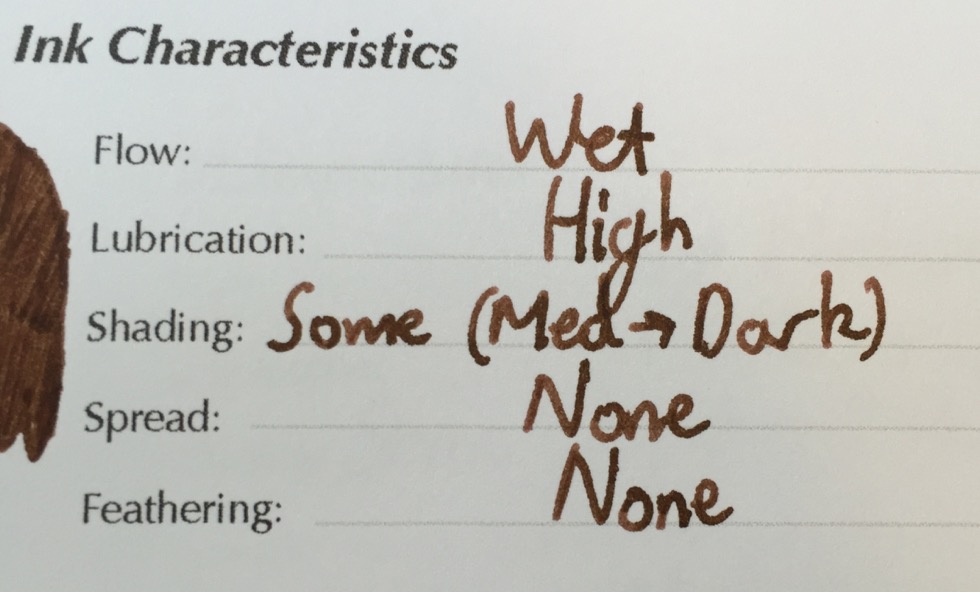 Ink Characteristics
Flow: Wet
Lubrication: High
Shading: Some (Med→Dark)
Spread: None
Feathering: None